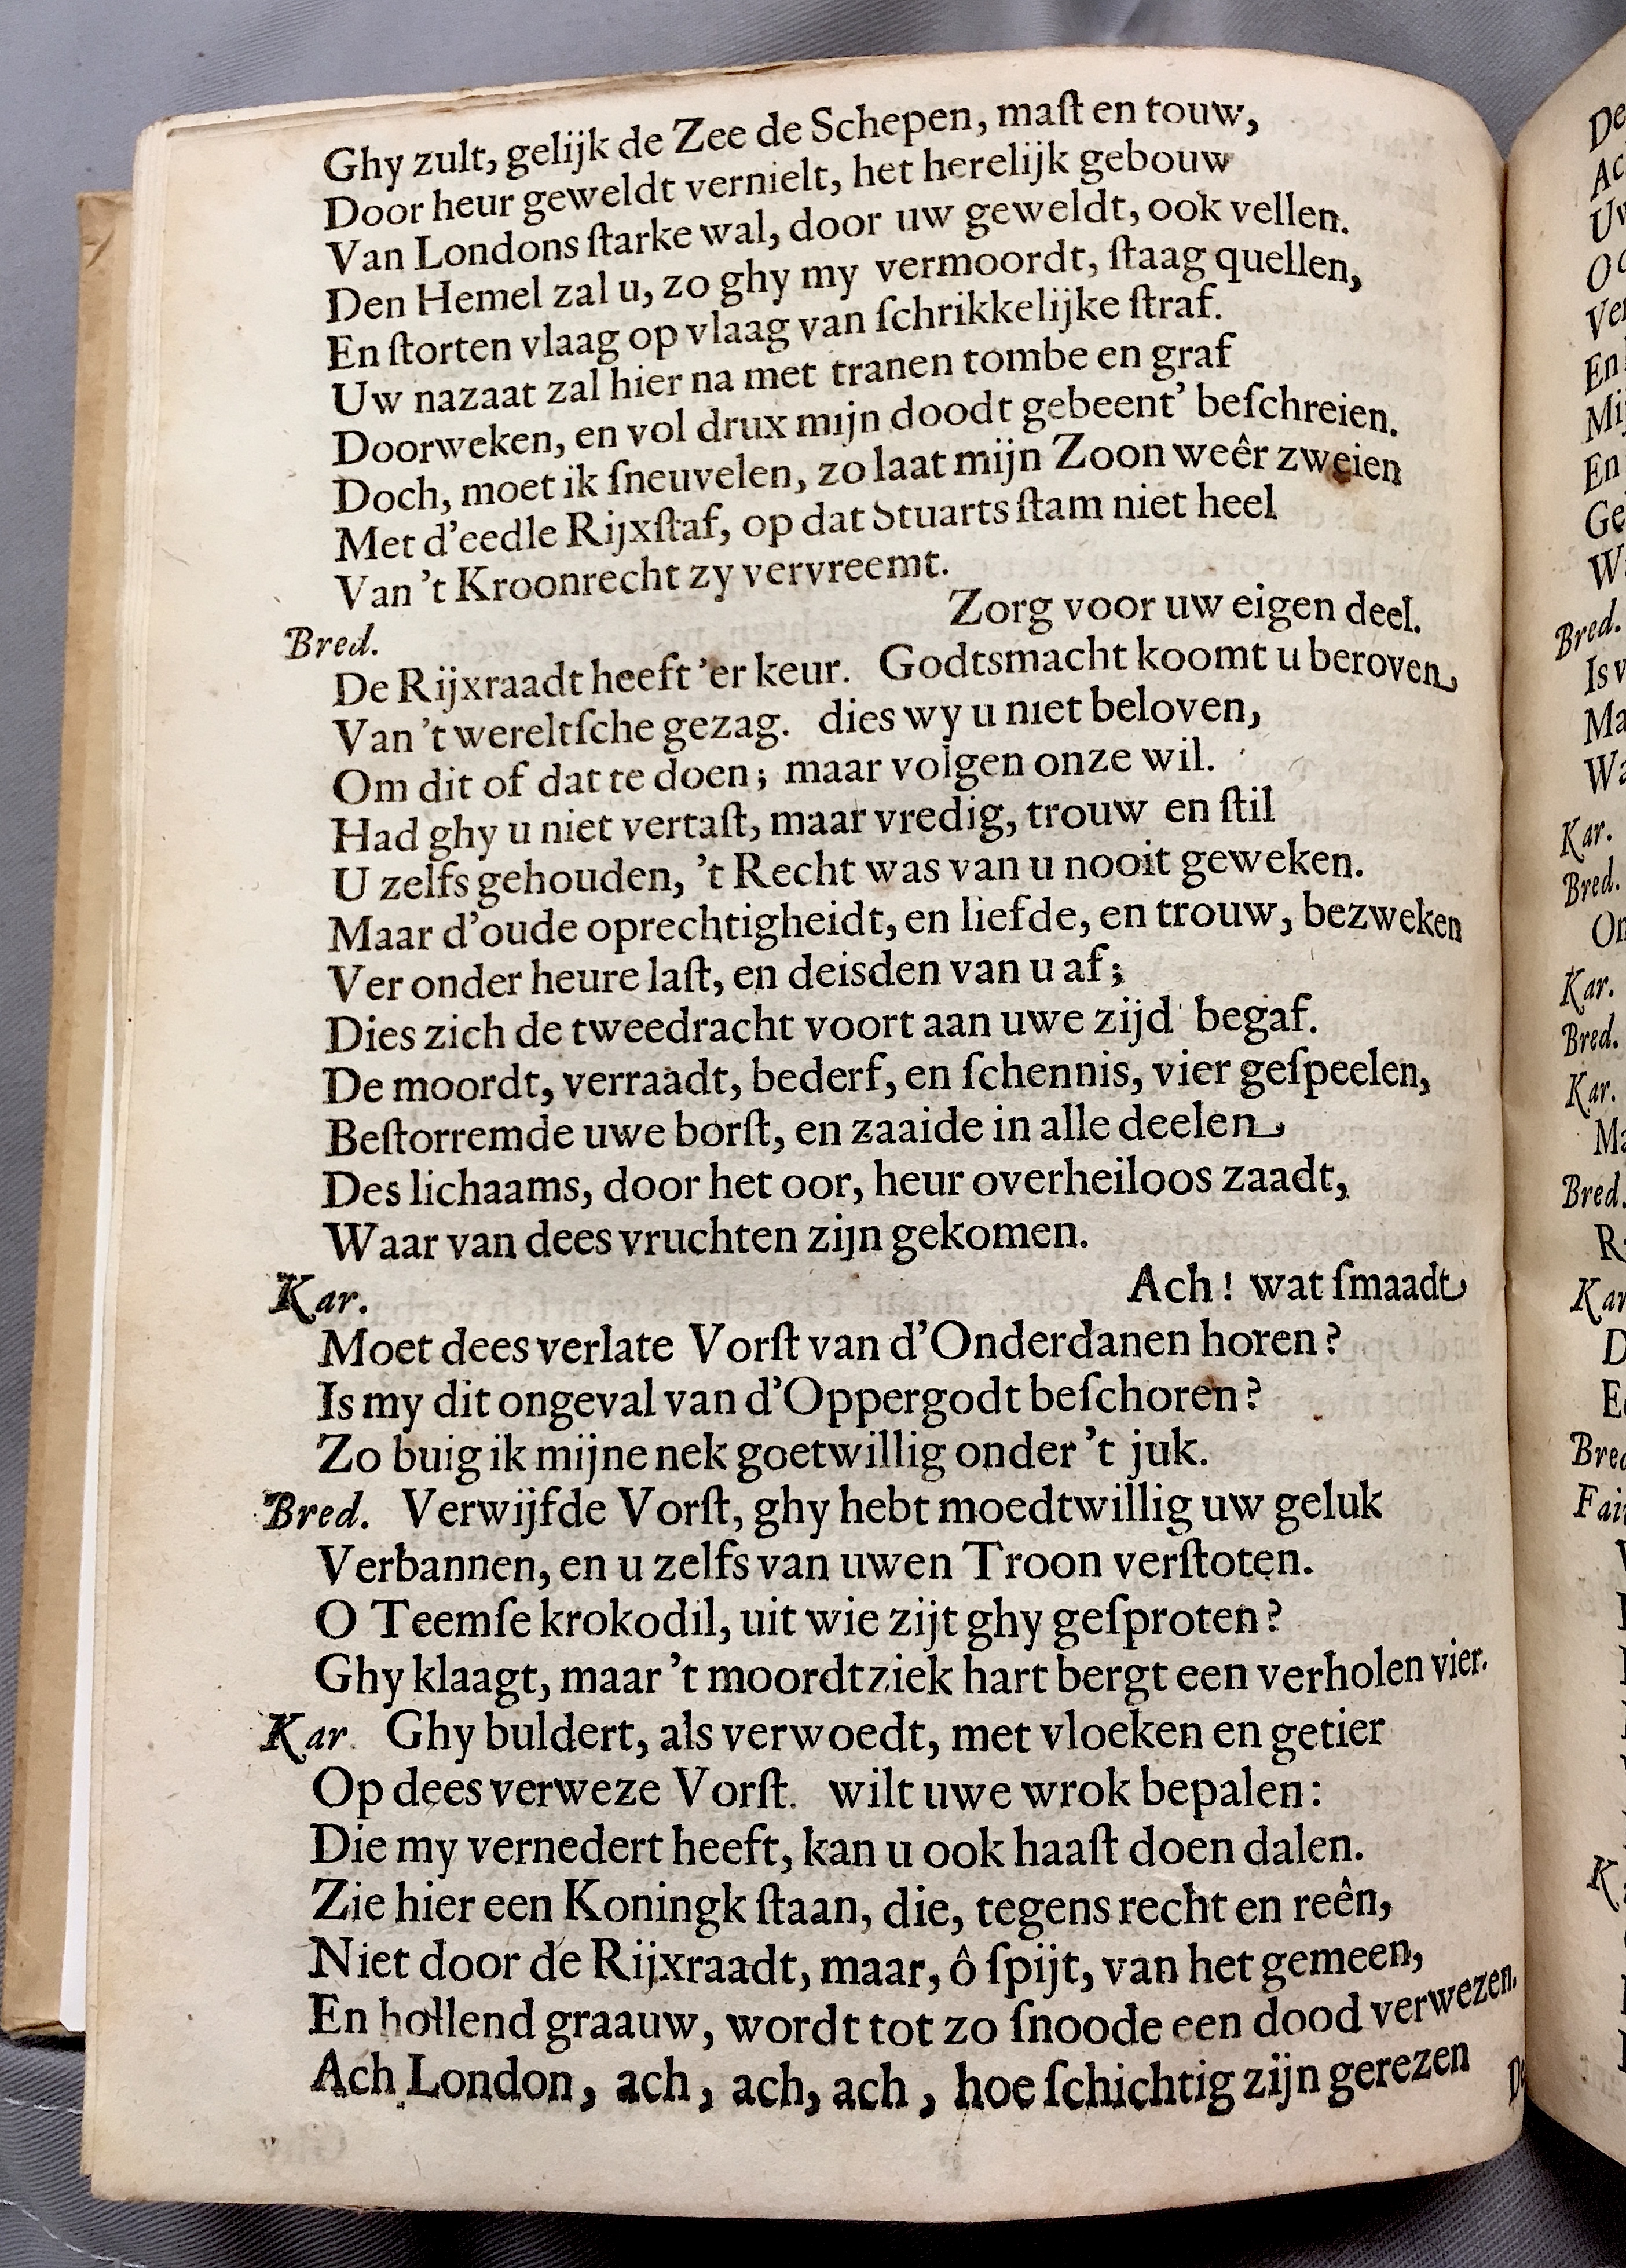 Ghy zult, gelijk de Zee de Schepen, maſt en touw,
Door heur geweldt vernielt, het herelijk gebouw
Van Londons ſtarke wal, door uw geweldt, ook vellen.
Den Hemel zal u, zo ghy my vermoordt, ſtaag quellen,
En ſtorten vlaag op vlaag van ſchrikkelijke ſtraf.
Uw nazaat zal hier na met tranen tombe en graf
Doorweken, en vol drux mijn doodt gebeent' beſchreien.
Doch, moet ik ſneuvelen, zo laat mijn Zoon weêr zweien
Met d'eedle Rijxſtaf, op dat Stuarts ſtam niet heel
Van 't Kroonrecht zy vervreemt.
Bred. Zorg voor uw eigen deel.
De Rijxraadt heeft 'er keur. Godtsmacht koomt u beroven
Van 't wereltſche gezag. dies wy u niet beloven,
Om dit of dat te doen; maar volgen onze wil.
Had ghy u niet vertaſt, maar vredig, trouw en ſtil
U zelfs gehouden, 't Recht was van u nooit geweken.
Maar d'oude oprechtigheidt, en liefde, en trouw, bezweken
Ver onder heure laſt, en deisden van u af;
Dies zich de tweedracht voort aan uwe zijd' begaf.
De moordt, verraadt, bederf, en ſchennis, vier geſpeelen,
Beſtorremde uwe borſt, en zaaide in alle deelen
Des lichaams, door het oor, heur overheiloos zaadt,
Waar van dees vruchten zijn gekomen.
Kar. Ach! wat ſmaadt
Moet dees verlate Vorſt van d'Onderdanen horen?
Is my dit ongeval van d'Oppergodt beſchoren?
Zo buig ik mijne nek goetwillig onder 't juk.
Bred. Verwijfde Vorſt, ghy hebt moedtwillig uw geluk
Verbannen, en u zelfs van uwen Troon verſtoten.
O Teemſe krokodil, uit wie zijt ghy geſproten?
Ghy klaagt, maar 't moordtziek hart bergt een verholen vier.
Kar. Ghy buldert, als verwoedt, met vloeken en getier
Op dees verweze Vorſt. wilt uwe wrok bepalen:
Die my vernedert heeft, kan u ook haaſt doen dalen.
Zie hier een Koningk ſtaan, die, tegens recht en reên,
Niet door de Rijxraadt, maar, ô ſpijt, van het gemeen,
En hollend graauw, wordt tot zo ſnoode een dood verwezen.
Ach London, ach, ach, ach, hoe ſchichtig zijn gerezen
Bred.
Kar.
Bred.
Kar.
Bred.
Kar.
Bred.